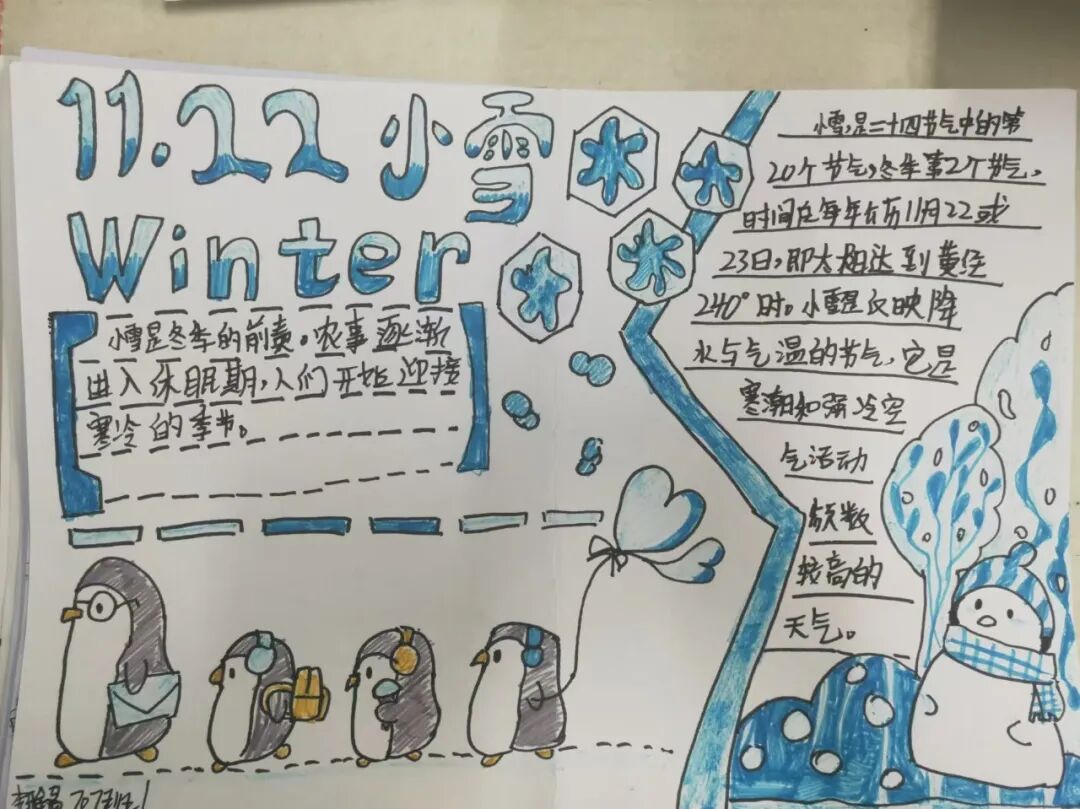 11.22 小雪
Winter
小雪是冬季的前奏。农事逐渐
进入休眠期,人们开始迎接
寒冷的季节。
小雪是二十四节气中的第
20个节气,冬季第2个节气。
时间在每年公历11月22或
23日,即太阳达到黄径
240°时。小雪是反映降
水与气温的节气,它是
寒潮和强冷空
气活动
频数
较高的
天气。
707班